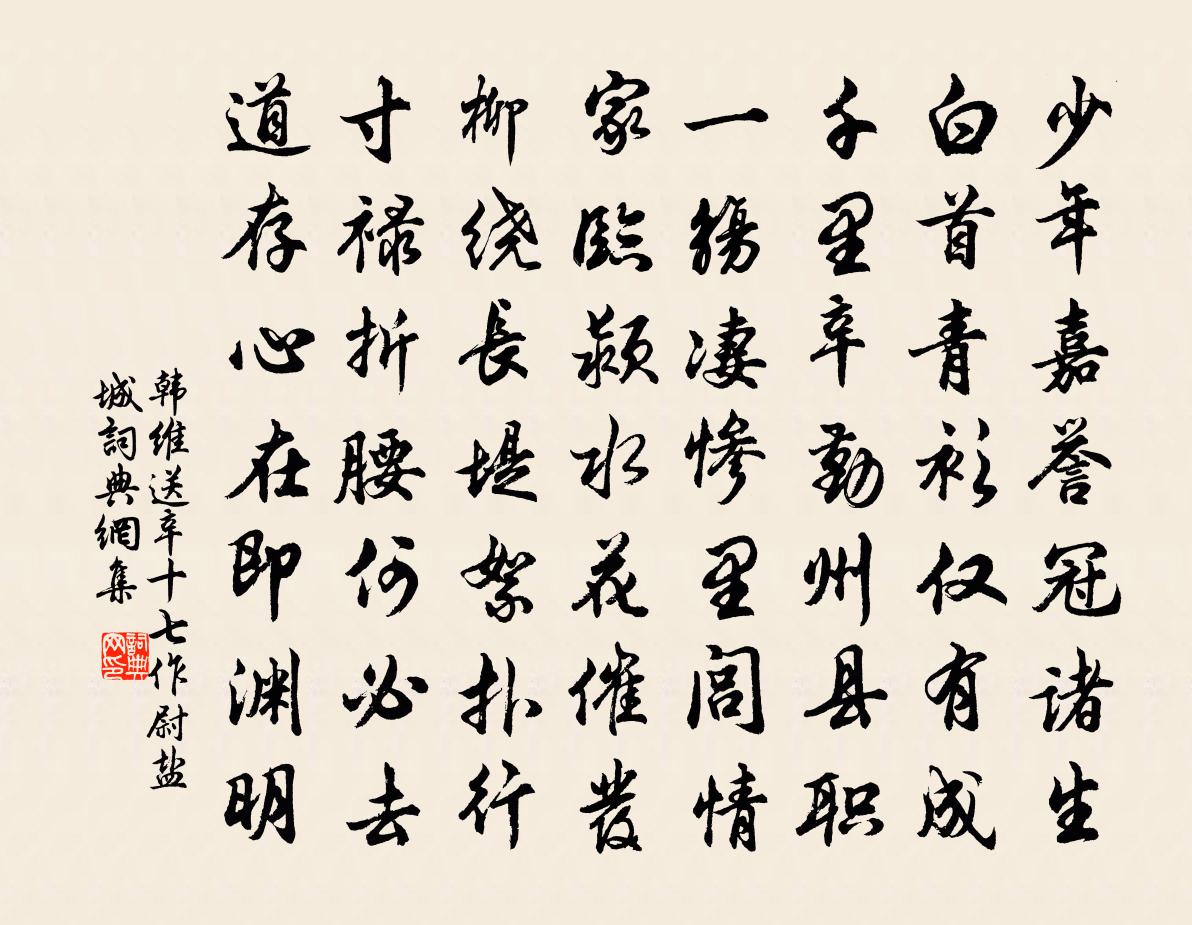 少年嘉誉冠诸生
白首青衫仅有成
千里辛勤州县职
一觞凄惨里闾情
家临颍水花催发
柳绕长堤絮扑行
寸禄折腰何必去
道存心在即渊明
韩维送辛十七作尉盐
城词典网集
词典网印